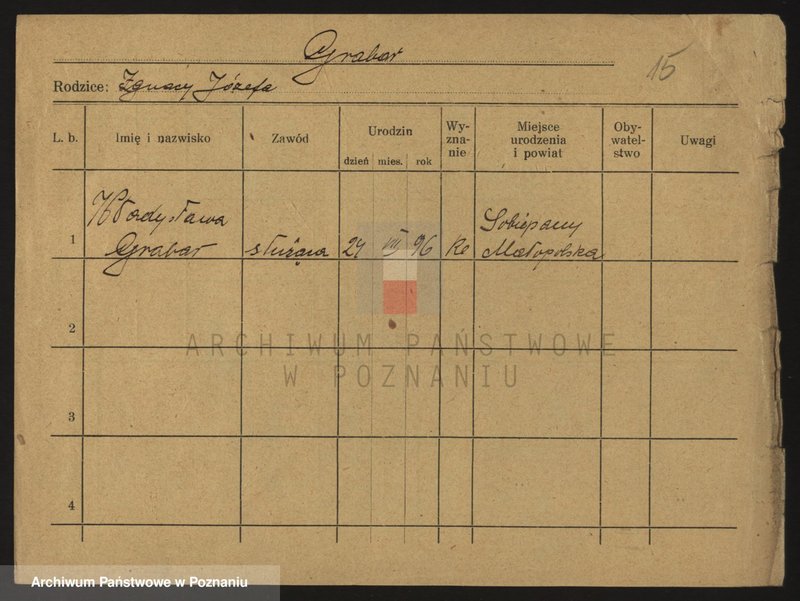 Grabar
15
Rodzice: Ignacy Józefa
L. b.
Imię i nazwisko
Zawód
Urodzin
dzień mies. rok
Wy-
zna-
nie
Miejsce
urodzenia
i powiat
Oby-
watel-
stwo
Uwagi
1
Władysława
Grabar
służąca
24 96
Małopolska
2
3
4
ARCHIWUM PAŃSTWOWE
W POZNANIU
Archiwum Państwowe w Poznaniu